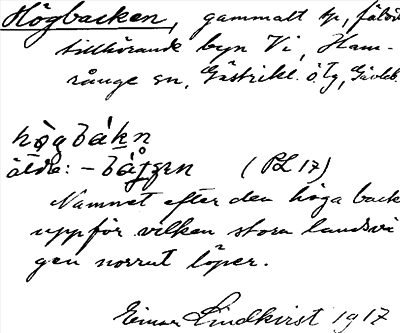 Högbacken, gammalt
tillhörande byn Vi, Ham-
rånge sn, Gästrikl. ö. Tg, Gävleb.
hö̀gbákn
äldre: – (PL 17)
Namnet efter den höga back
uppför vilken stora landsvä
gen norrut löper.
Einar Lindkvist 1917